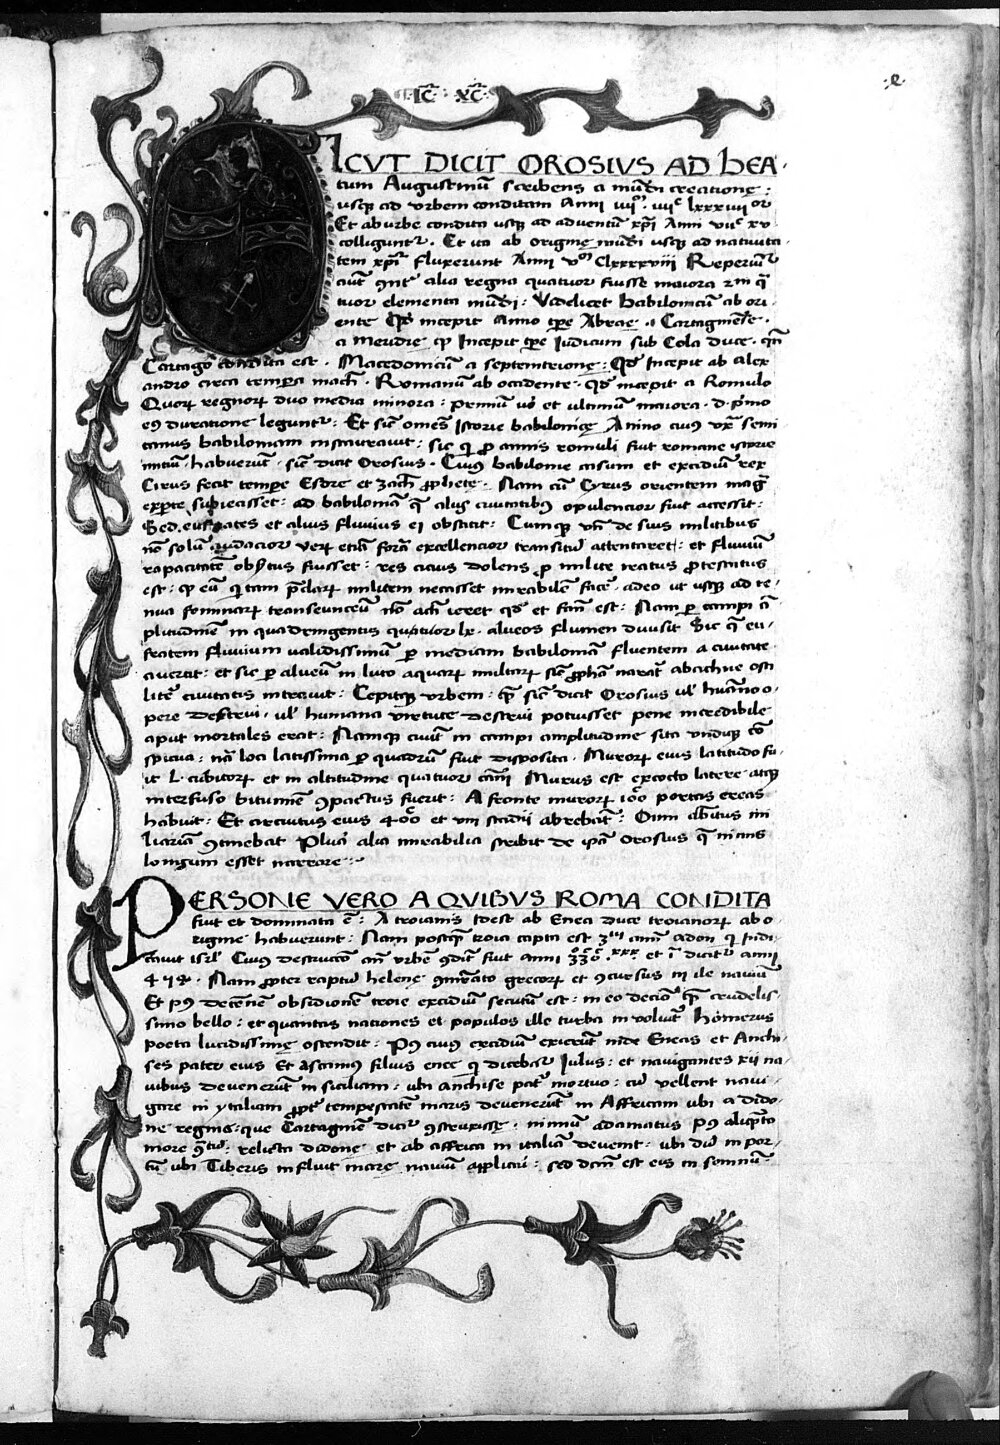 IC XC
e
ICVT DICIT OROSIVS AD bEA·
tum Augustinū scribens a mūdi creatione:
usqȝ ad vrbem conditam Anni iiijᵐ· iiijᶜ lxxxiiij or
Et ab urbe condita usqȝ ad aduentū xp̄i Anni vijᶜ xv
colliguntʳ. Et ita ab origine mūdi usqȝ ad natiuita
tem xp̄i fluxerunt Anni vᵐ Clxxxxviiij Reperiūtʳ
aūt ꝯntʳ alia regna quatuor fuisse maiora 2m q̄
tuor elementa mūdi: Videlicet babilonicū ab ori
ente Qd̄ incepit anno tp̄re Abrae. Cartaginēse.
a Meridie qd̄ Incepit tp̄re Iudicum sub Cola duce. qn̄
Cartago condita est. Macedonicū a septentrione: Qd̄ Incepit ab Alex
andro circa tempora mach. Romanū ab occidente. qd̄ incepit a Romulo
Quoꝝ regnoꝝ duo media minora: primū uo et ultimum maiora. d. pīmo
eꝯ duratione leguntʳ: Et sūt om̄es Istorie babilonicę A nino cuius vx̄ semi
ramis babiloniam instaurauit: sic q ꝓ annis romuli fuit romane istorie
initiū habuerūt. sūt dicit Orosius. Cuiꝯ babilonie casum et excidiū rex
Cirus fecit tempore Esdre et zach ꝓphete. Nam cū Cyrus orientem mag
exp̄te subiecisset: ad babilonia q̄ alijs ciuitatibꝯ opulencior fuit accessit:
Sed. eufrates et alius fluuius ei obstitit: Cumqȝ vn̄ de suis militibus
nō solū audacior veꝝ etiā forā excellencior transitū attentaret: et fluuiū
rapacitate obrutus fuisset: res cirus dolens ꝓ milite
est: qd̄ eū q tam p̄claꝝ militem necasset mirabilem facē. adeo ut usqȝ ad te
nua feminaꝝ transeunceū nō ad ieret qd̄ et fact̄ est: Nam ꝑ campi ā
plitudinē in quadringentis quatuor lx. alueos flumen diuisit Sic q̄ eu
fratem fluuium ualidissimū ꝑ mediam babiloniā fluentem a ciuitate
auertit: et sic ꝑ alueū in luto aquaꝝ
litē ciuitatis intrauit: Cepitqȝ vrbem: q̄ sūt dicit Orosius ul̄ hūano o
pere destrui. ul̄ humana virtute destrui potuisset pene incredibile
aput mortales erat: Namqȝ ciuit̄ in campi amplitudine sita vndiqȝ cō
spicua: nā loci latissima ꝑ quadrū fuit disposita. Muroꝝ eius latitudo fu
it L cubitoꝝ et in altitudine quatuor cāni Murus est ex cocto latere atqȝ
interfuso bitumē ꝯpactus fuerit: A fronte muroꝝ 100 portas ereas
habuit: Et circuitus eius 400 et viij stadij abrebāt: Oim ambitus mi
liariā ꝯtinebat Plura alia mirabilia scribit de ip̄a Orosius q̄ nimis
longum esset narrare:
PERSONE VERO A QVIBVS ROMA CONDITA
fuit et dominata ē: A troianis Idest ab Enea duce troianoꝝ ab o
rigine habuerunt: Nam postqȝ troia capta est 3ᵐ anni adon q Iudi
cauit isrl̄ Cuiꝯ destructō an̄ vrbē ꝯdit̄ fuit anni
4 Nam ꝓpter raptū helenę ꝯiurato grecoꝝ et ꝯcursus m ile nauiū
Et pꝯ decēnē obsidionē troie excidiū secutū est: in eo decīo q̄ crudelis
simo bello: et quantas nationes et populos ille turbo in voluit Homerus
poeta lucidissimę ostendit: Pꝯ cuiꝯ excidiū exierūt inde Eneas et Anchi
ses pater eius Et ascanius filius enee q̄ dicebat̄ Iulus: et nauigantes xii na
uibus deuenerūt in siciliam: ubi anchise pat̄ mortuo: cū vellent naui
gare in ytaliam ꝓpt̄ tempestatē maris deuenerūt in Affricam ubi a dido
ne regina: que Cartaginē dicit̄ ꝯstruxisse. nimiū adamatus pꝯ aliq̄nto
more ꝯtū: relicta didone et ab affrica in italiā deuenit: ubi dū in por
tū ubi Tiberis influit mare nauiū applicui: sed dc̄m est eis in somniū